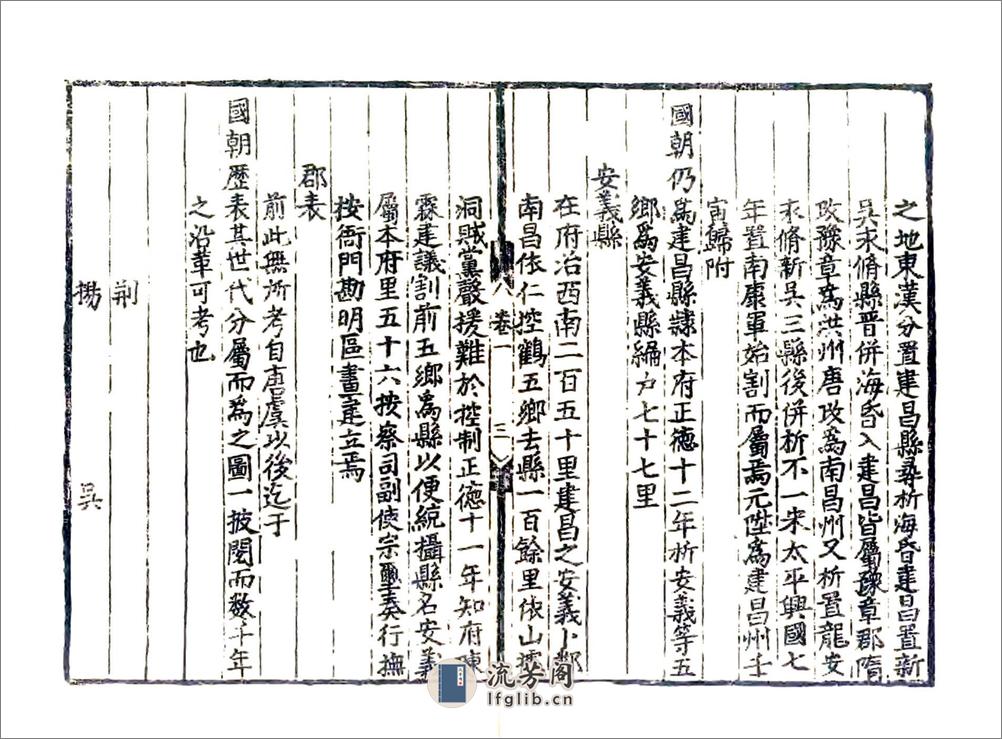 之地東漢分置建昌縣尋析海昏建昌置新
吳永脩縣晉併海昏入建昌皆屬豫章郡隋
改豫章爲洪州唐改爲南昌州又析置龍安
永脩新吳三縣後併析不一宋太平興國七
年置南康軍始割而屬焉元陞爲建昌州壬
寅歸附
國朝仍爲建昌縣隷本府正德十二年析安義等五
鄉爲安義縣編戶七十七里
安義縣
在府治西南二百五十里建昌之安義卜鄰
南昌依仁控鶴五鄉去縣一百餘里依山
卷一
三
洞賊黨聲援難於控制正德十一年知府陳
霖建議割前五鄉爲縣以便統攝縣名安義
屬本府里五十六按察司副使宗璽奏行撫
按衙門勘明區畫建立焉
郡表
前此無所考自唐虞以後迄于
國朝歷表其世代分屬而爲之圖一披閱而数千年
之沿革可考也
荊
揚 吳
流芳阁
lfglib.cn